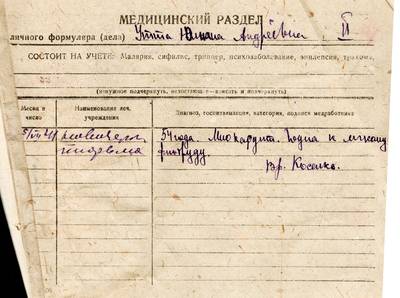 МЕДИЦИНСКИЙ РАЗДЕЛ
личного формуляра (дела) Утта Юлиана Андреевича II
СОСТОИТ НА УЧЕТЕ: Малярия, сифилис, триппер, психозаболевание, эпилепсия, трахома,
(ненужное подчеркнуть, недостающее—вписать и подчеркнуть)
Месяц и число
Наименование леч. учреждения
Диагноз, госпитализация, категория, подпись медработника
тюрьма
54 года. Миокардит. Годна к легкому
физтруду.
Вр. Косенко.